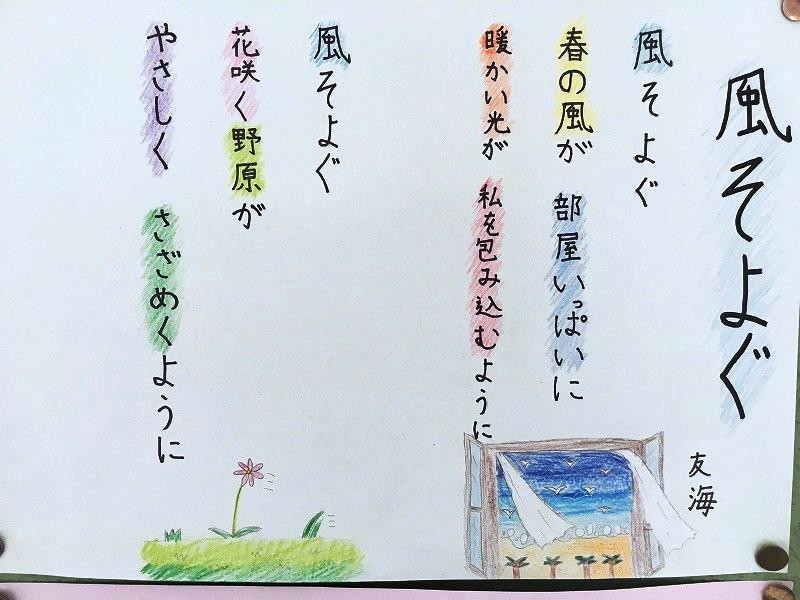 風そよぐ
友海
風そよぐ
春の風が 部屋いっぱいに
暖かい光が 私を包み込むように
風そよぐ
花咲く野原が
やさしく さざめくように